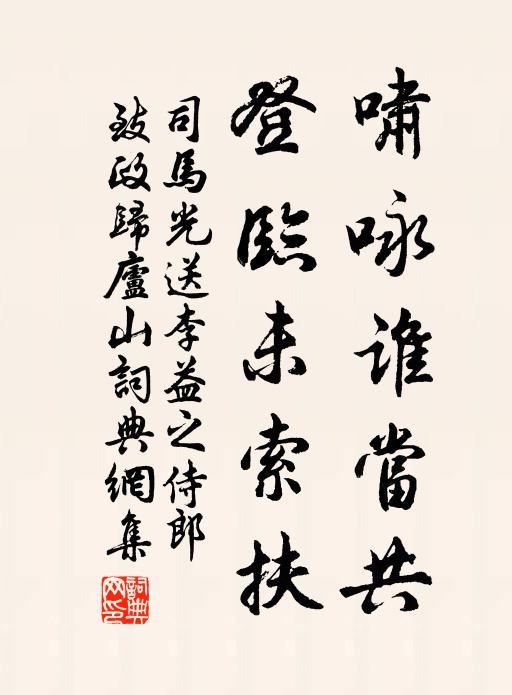 嘯咏誰當共
登臨未索扶
司馬光送李益之侍郎
致政歸廬山詞典網集
詞典網印